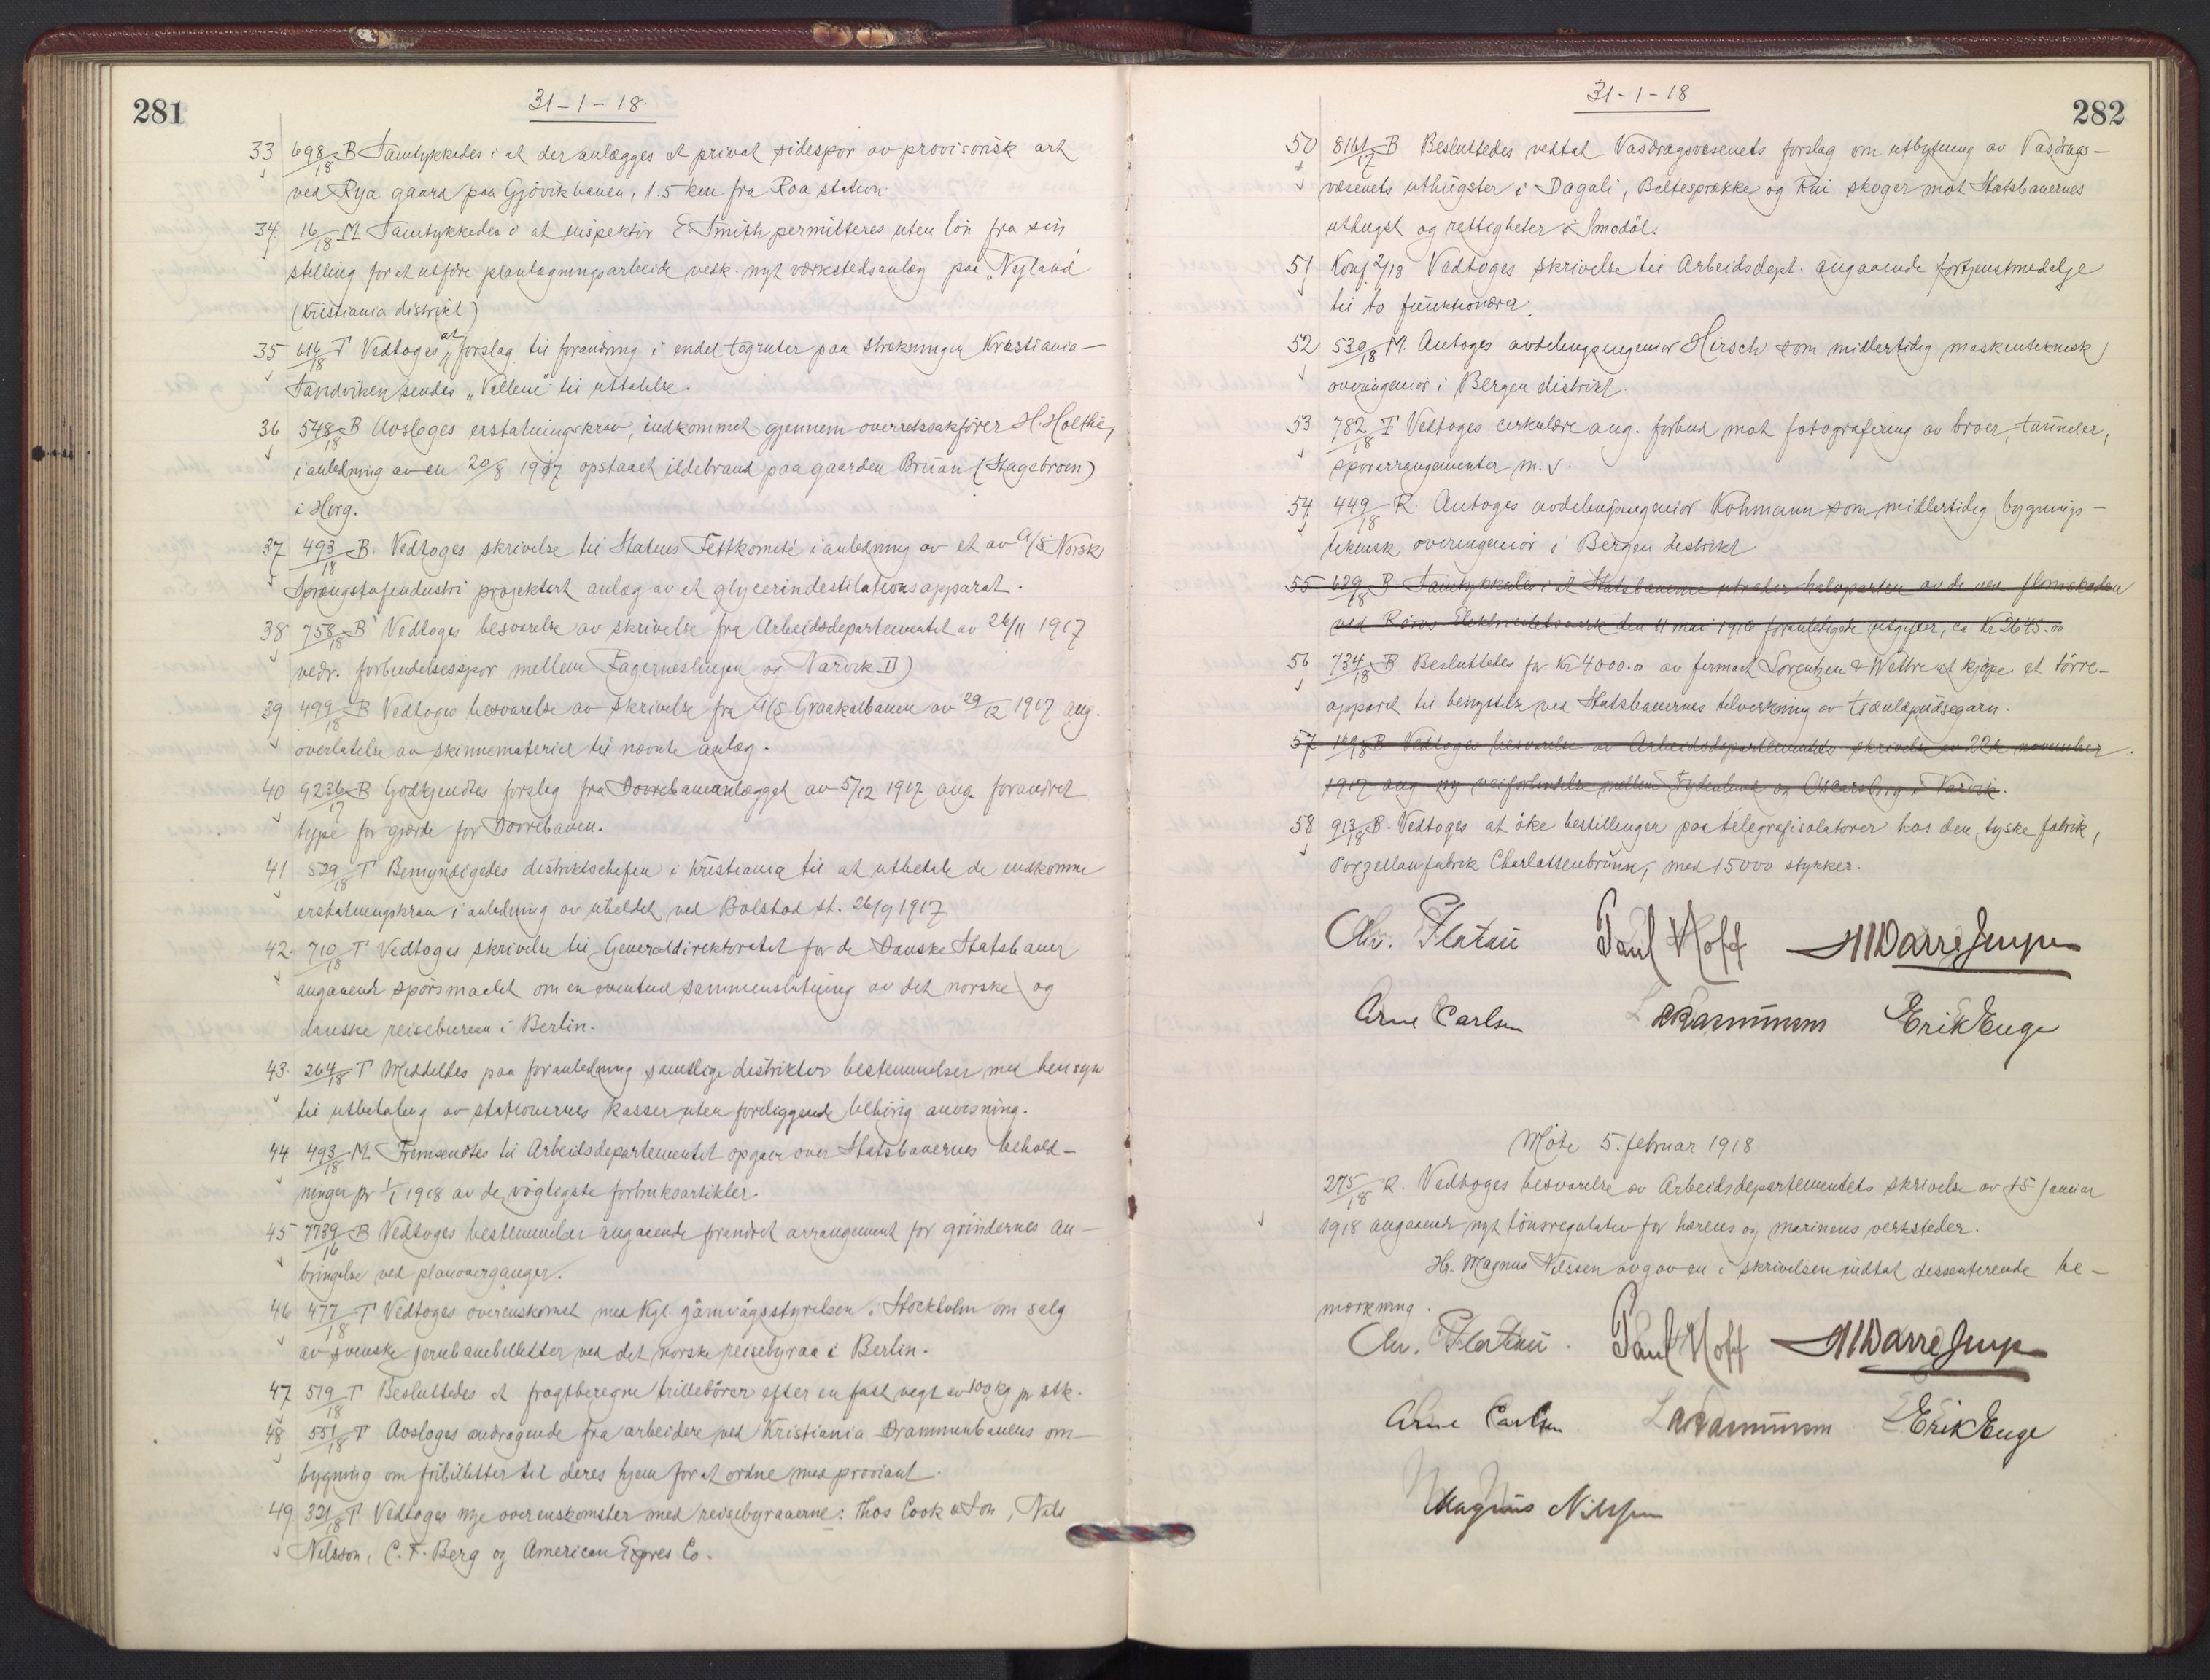 281
31-1-18.
33 698/18 B Samtykkedes i at der anlægges et privat sidespor av provisorisk art
ved Rya gaard paa Gjövikbanen, 1.5 km fra Roa station
34. 16/18 M Samtykkedes i at inspektör E. Smith permitteres uten lön fra sin
stilling for at utföre planlægningsarbeide vedk. nyt verkstedsanlæg paa „Nyland"
(Kristiania distrikt)
35 616/18 T Vedtoges at forslag til forandring i endel togruter paa strekningen Kristiania-
Sandviken sendes „Vellene" til uttalelse.
36 548/18 B Avsloges erstatningskrav, indkommet gjennem overretssakförer H. Holthe,
i anledning av en 20/8 1917 opstaaet ildebrand paa gaarden Bruan (Hagebroen)
i Horg.
37 493/18 B. Vedtoges skrivelse til Statens Fettkomité i anledning av et av A/S Norsk
Sprængstofindustri projektert anlæg av et glycerindestilationsapparat.
38 758/18 B Vedtoges besvarelse av skrivelse fra Arbeidsdepartementet av 26/11 1917
vedr. forbindelsesspor mellem Fagerneslinjen og Narvik II)
39 499/18 B Vedtoges besvarelse av skrivelse fra A/S Graakalbanen av 29/12 1917 ang.
overlatelse av skinnemateriel til nævnte anlæg.
40 9236/17 B Godkjendtes forslag fra Dovrebaneanlægget av 5/12 1917 ang. forandret
type for gjærde for Dovrebanen.
41 529/18 T Bemyndigedes distriktschefen i Kristiania til at utbetale de indkomne
erstatningskrav i anledning av uheldet ved Bolstad st. 26/9 1917
42. 710/18 T Vedtoges skrivelse til Generaldirektoratet for de Danske Statsbaner
angaaende spörsmaalet om en eventuel sammenslutning av det norske og
danske reisebureau i Berlin.
43. 264/18 T Meddeltes paa foranledning samtlige distrikter bestemmelser med hensyn
til utbetaling av stationernes kasser uten foreliggende behörig anvisning.
44 493/18 M Fremsendtes til Arbeidsdepartementet opgave over Statsbanernes behold-
ninger pr 1/1 1918 av de vigtigste forbruksartikler.
45 7739/16 B Vedtoges bestemmelser angaaende forandret arrangement for grindernes an-
bringelse ved planoverganger.
46 477/18 T Vedtoges overenskomst med Kgl. järnvägsstyrelsen i Stockholm om salg
av svenske jernbanebilletter ved det norske reisebyraa i Berlin.
47 519/18 T Besluttedes at fragtberegne trillebörer efter en fast vegt av 100 kg pr stk.
48 551/18 T Avsloges andragende fra arbeidere ved Kristiania-Drammenbanens om-
bygning om fribilletter til deres hjem for at ordne med proviant.
49 321/18 T Vedtoges nye overenskomster med reisebyraaerne: Thos Cook & Son, Nils
Nilsson, C. F. Berg og American Expres Co.
31-1-18
282
50 8161/17 B Besluttedes vedtat Vasdragsvesenets forslag om utbytning av Vasdrags-
væsenets uthugster i Dagali, Beltesprække og Rui skoger mot Statsbanernes
uthugst og rettigheter i Smodöl.
51 Konf. 2/18 Vedtoges skrivelse til Arbeidsdept. angaaende fortjenstmedalje
til to funktionærer.
52 530/18 M. Antoges avdelingsingeniör Hirsch som midlertidig maskinteknisk
overingeniör i Bergen distrikt.
53 782/18 T Vedtoges cirkulære ang. forbud mot fotografering av broer, tunneler,
sporarrangementer m. v.
54 449/18 R. Antoges avdelingsingeniör Kohmann som midlertidig bygnings-
teknisk overingeniör i Bergen distrikt
55 629/18 B Samtykkedes i at Statsbanerne utreder halvparten av de ved flomskaden
ved Röros Elektricitetsverk den 11 mai 1916 foranledigede utgifter, ca Kr 2645.00
56 734/18 B Besluttedes for Kr 4000.00 av firmaet Lorentzen & Wettre at kjöpe et törre-
apparat til benyttelse ved Statsbanernes tilvirkning av trænlspudsegarn.
57 1898 B Vedtoges besvarelse av Arbeidsdepartementets skrivelse av 22de november
1917 ang ny veiforbindelse mellem Frydenlund og Oscarsborg i Narvik.
58 913/18 B. Vedtoges at öke bestillingen paa telegrafisolatorer hos den tyske fabrik,
Porzellanfabrik Charlottenbrunn, med 15000 stykker.
Chr. Platou Paul Hoff HMDarreJensen
Arne Carlsen LARasmussen Erik Enge
Möte 5. februar 1918
275/18 R. Vedtoges besvarelse av Arbeidsdepartementets skrivelse av 15 januar
1918 angaaende nyt lönsregulativ for hærens og marinens verksteder.
Hr. Magnus Nilssen avgav en i skrivelsen indtat dissenterende be-
merkning.
Chr. Platou. Paul Hoff HMDarreJensen
Arne Carlsen LARasmussen Erik Enge
Magnus Nilssen